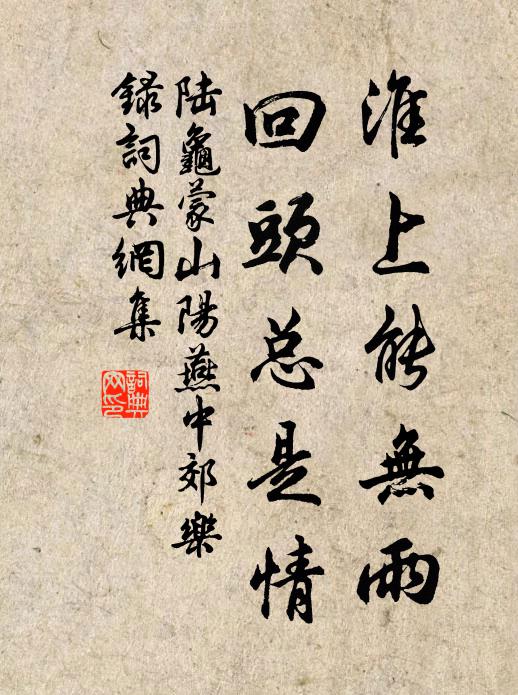 淮上能無雨
回頭总是情
陆龜蒙山陽燕中郊樂
録詞典網集
詞典
网印